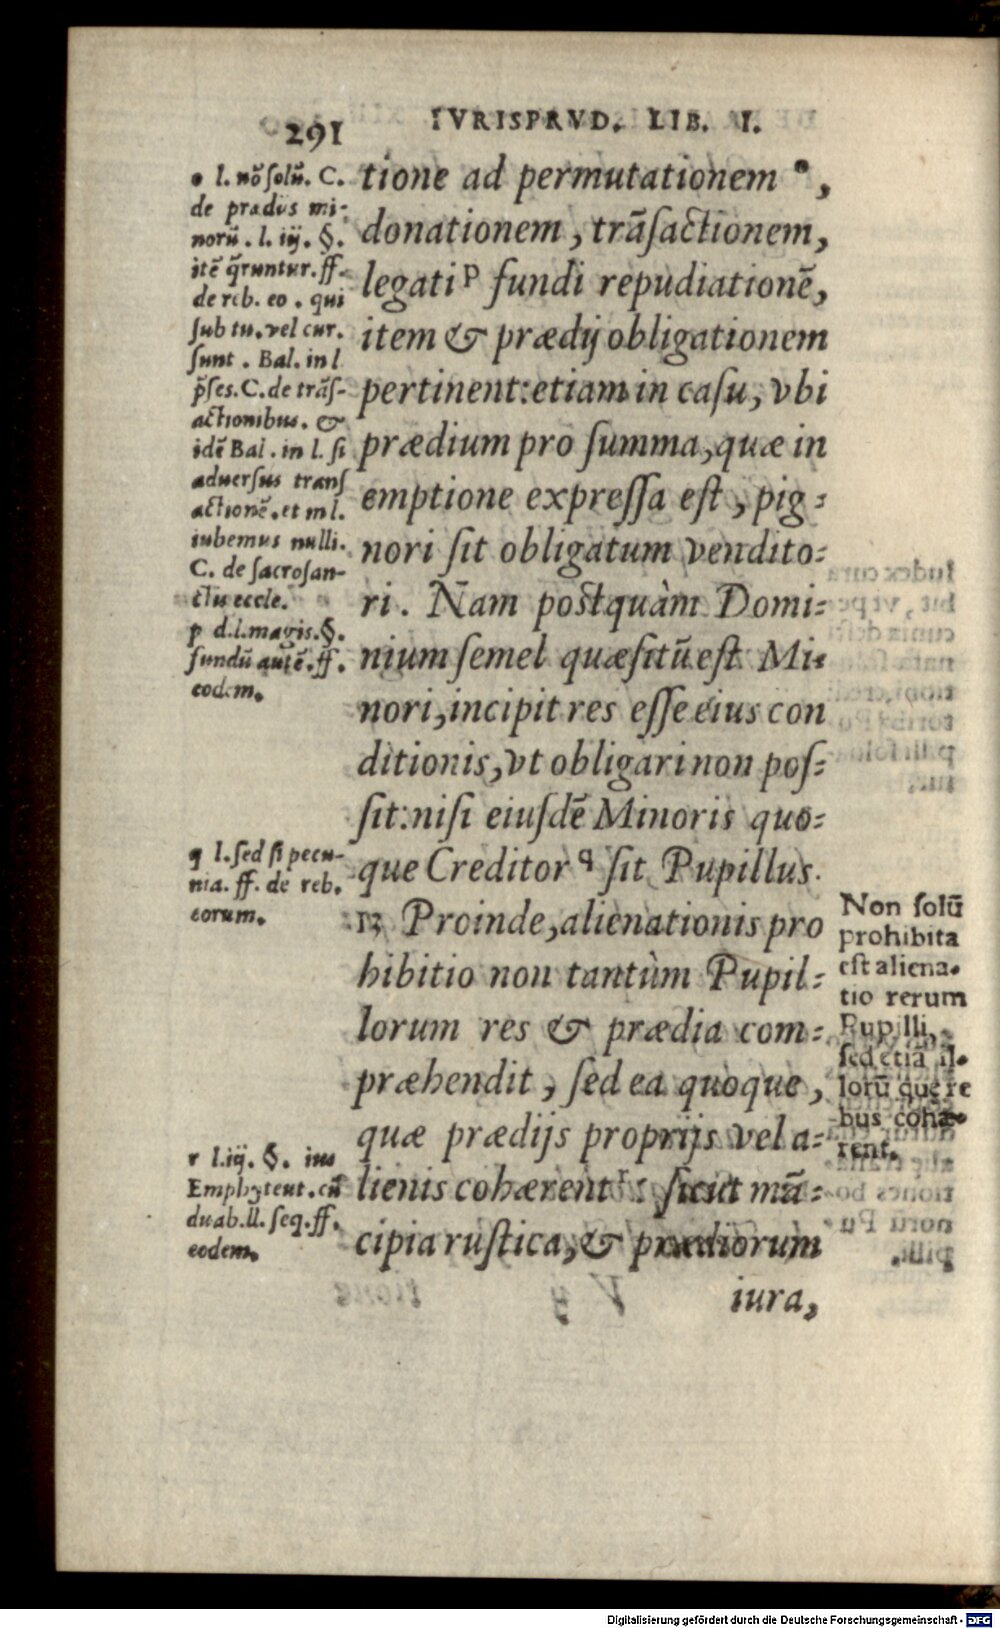 291
IVRISPRVD. LIB. I.
o l. nõ solũ. C.
de prædiis mi-
norũ. l. iij. §.
itē q̃runtur. ff.
de reb. eo. qui
sub tu. vel cur.
sunt. Bal. in l
p̃ses. C. de trãs-
actionibus. &
idē Bal. in l. si
aduersus trans
actionē. et in l.
iubemus nulli.
C. de sacrosan-
ctis eccle.
p d. l. magis. §.
fundũ autē. ff.
eodem.
tione ad permutationem °,
donationem, trãsactionem,
legati ᵖ fundi repudiationē,
item & prædij obligationem
pertinent: etiam in casu, vbi
prædium pro summa, quæ in
emptione expressa est, pig-
nori sit obligatum vendito-
ri. Nam postquàm Domi-
nium semel quæsitũ est Mi-
nori, incipit res esse eius con
ditionis, vt obligari non pos-
sit: nisi eiusdē Minoris quo-
que Creditor q sit Pupillus.
q l. sed si pecu-
nia. ff. de reb.
eorum.
13 Proinde, alienationis pro
hibitio non tantùm Pupil-
lorum res & prædia com-
præhendit, sed ea quoque,
quæ prædijs proprijs vel a-
lienis cohærent ʳ: sicut mã-
cipia rustica, & prædiorum
Non solũ
prohibita
est aliena-
tio rerum
Pupilli,
sed etiã il-
lorũ quę re
bus cohæ-
rent.
r l. iij. §. ius
Emphyteut. cũ
duab. ll. seq. ff.
eodem.
iura,
Digitalisierung gefördert durch die Deutsche Forschungsgemeinschaft - DFG